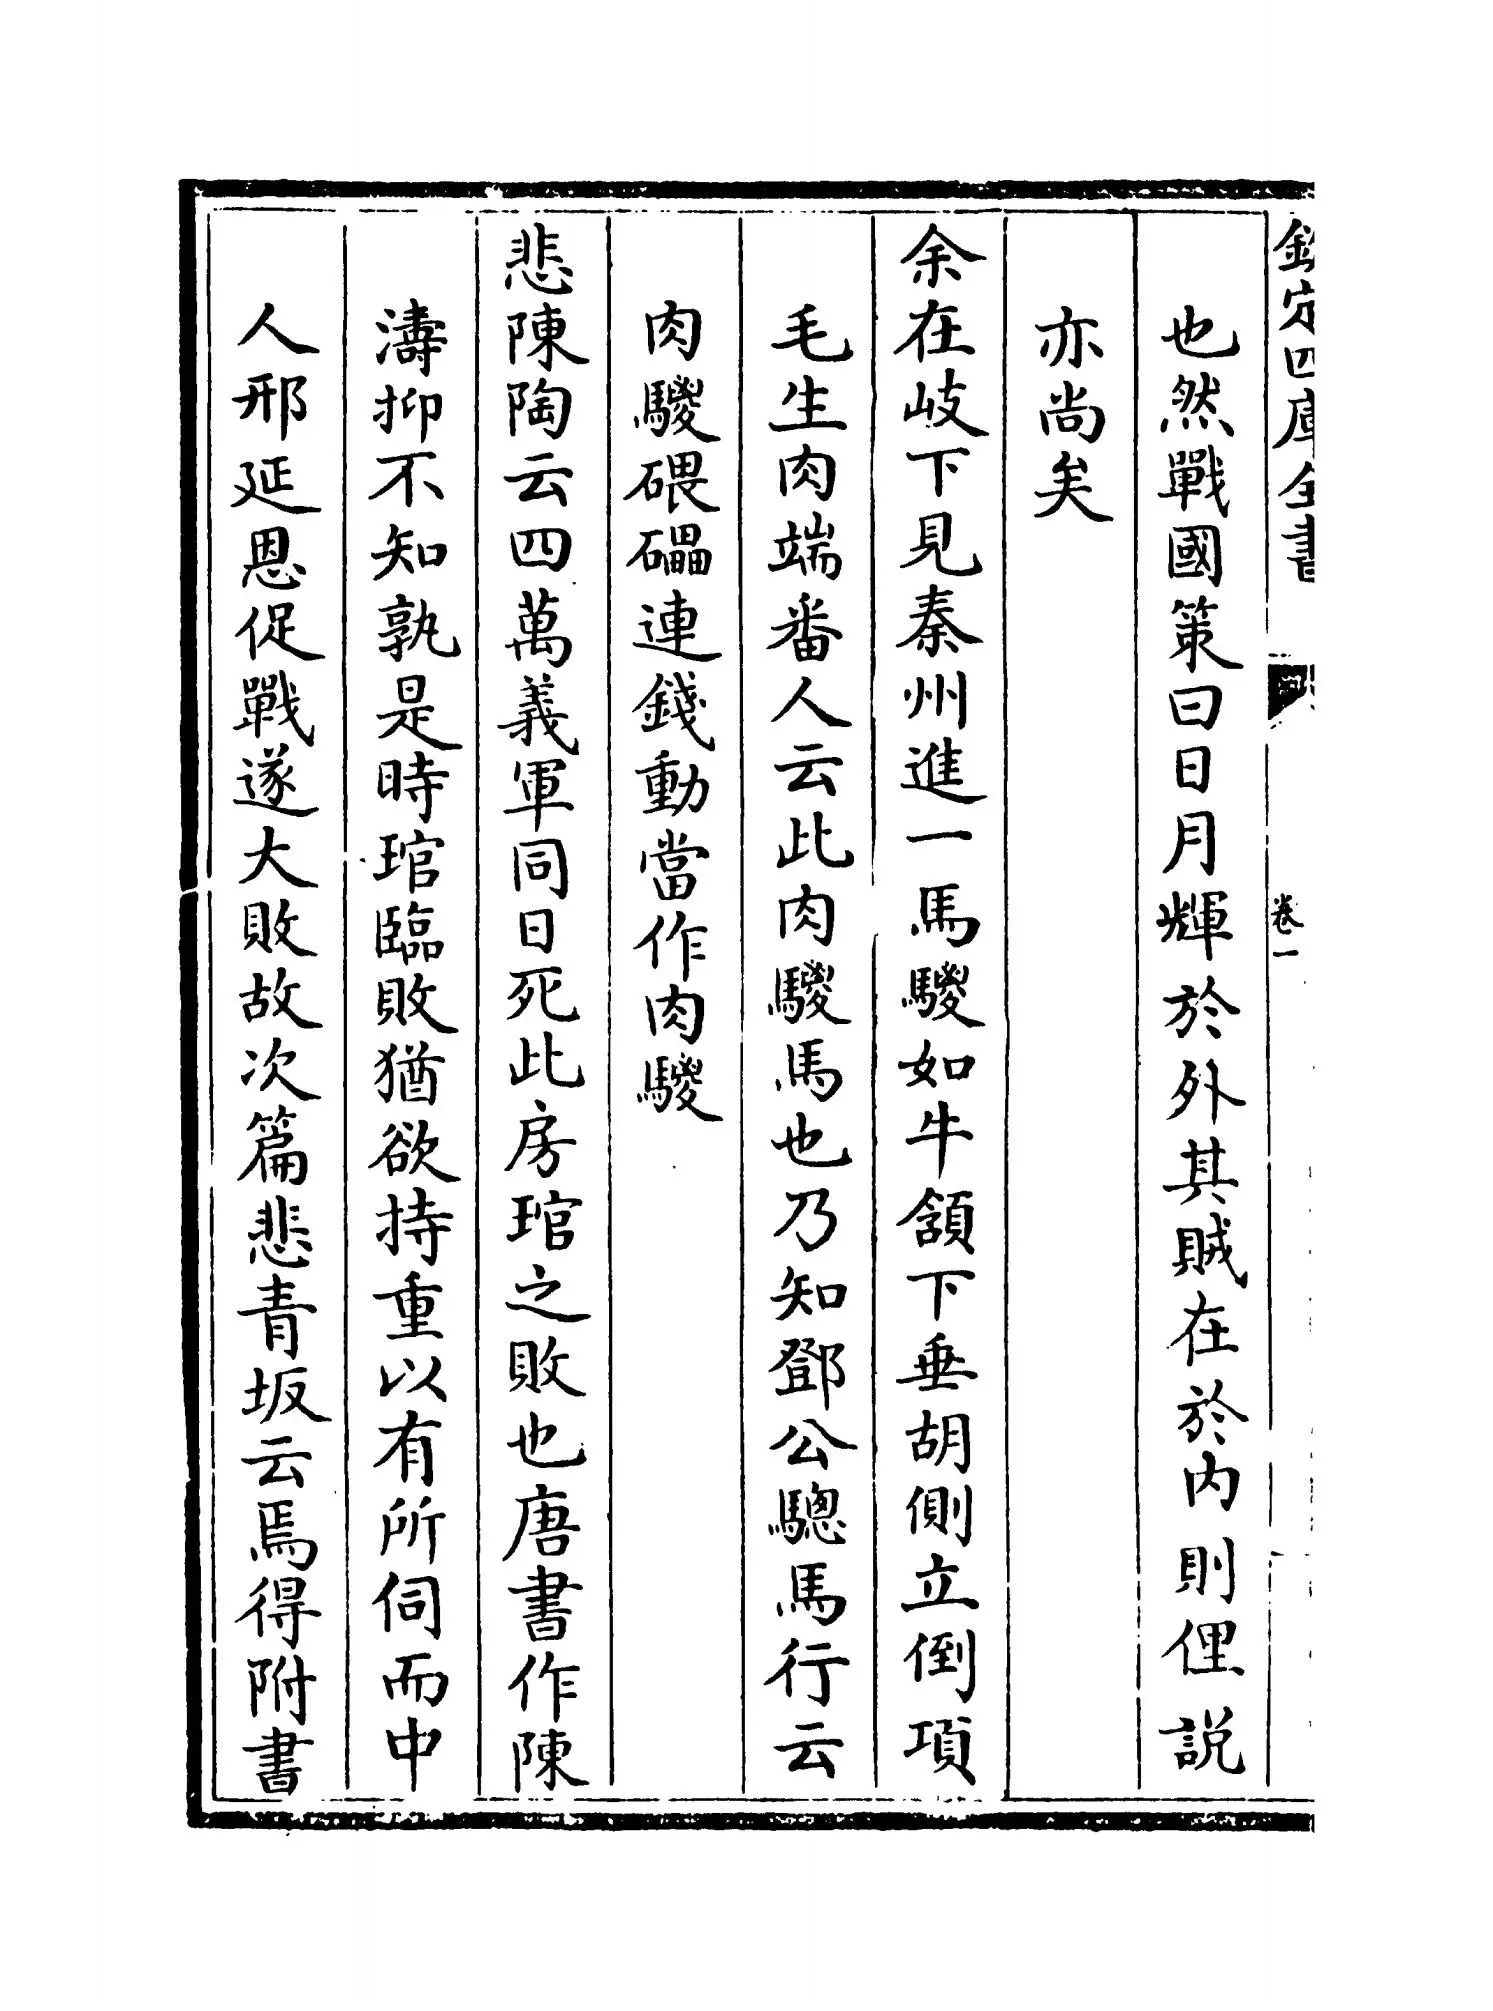 欽定四庫全書
卷一
也然戰國策曰日月輝於外其賊在於内則俚説
亦尚矣
余在岐下見秦州進一馬騣如牛頷下垂胡側立倒項
毛生肉端番人云此肉騣馬也乃知鄧公驄馬行云
肉騣碨礧連錢動當作肉騣
悲陳陶云四萬義軍同日死此房琯之敗也唐書作陳
濤抑不知孰是時琯臨敗猶欲持重以有所伺而中
人邢延恩促戰遂大敗故次篇悲青坂云焉得附書